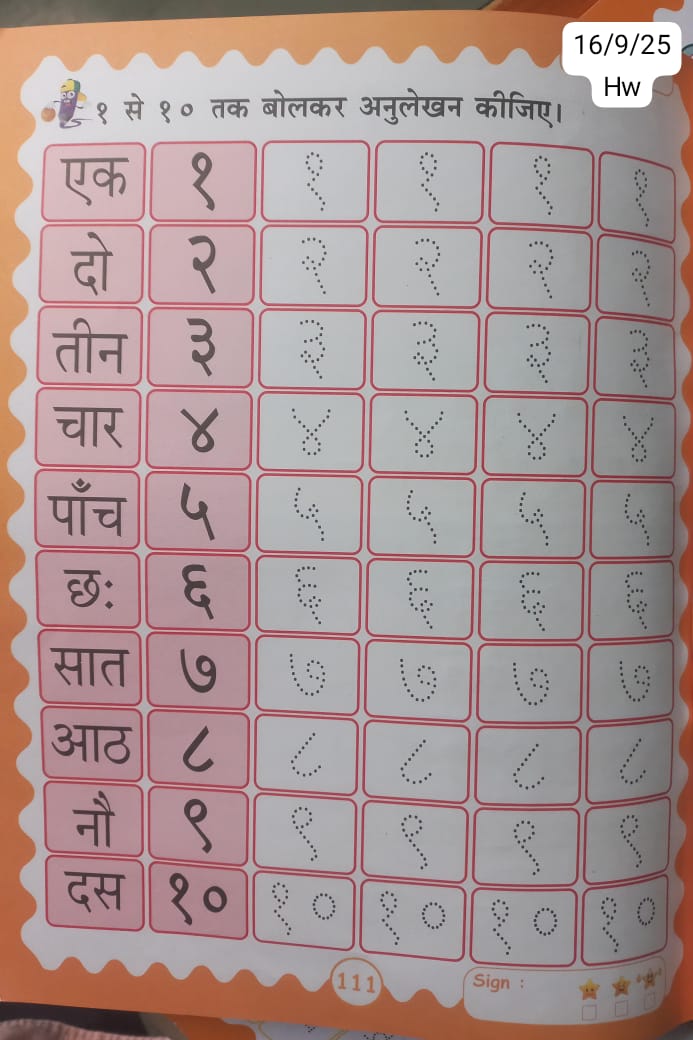 16/9/25
Hw
१ से १० तक बोलकर अनुलेखन कीजिए।
एक १ १ १ १ १
दो २ २ २ २ २
तीन ३ ३ ३ ३ ३
चार ४ ४ ४ ४ ४
पाँच ५ ५ ५ ५ ५
छः ६ ६ ६ ६ ६
सात ७ ७ ७ ७ ७
आठ ८ ८ ८ ८ ८
नौ ९ ९ ९ ९ ९
दस १० १० १० १० १०
111
Sign :